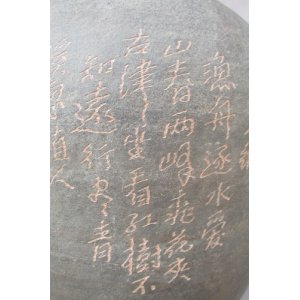 漁舟逐水愛
山春两峰花夾
古津坐看紅樹不
知遠行尽青
人